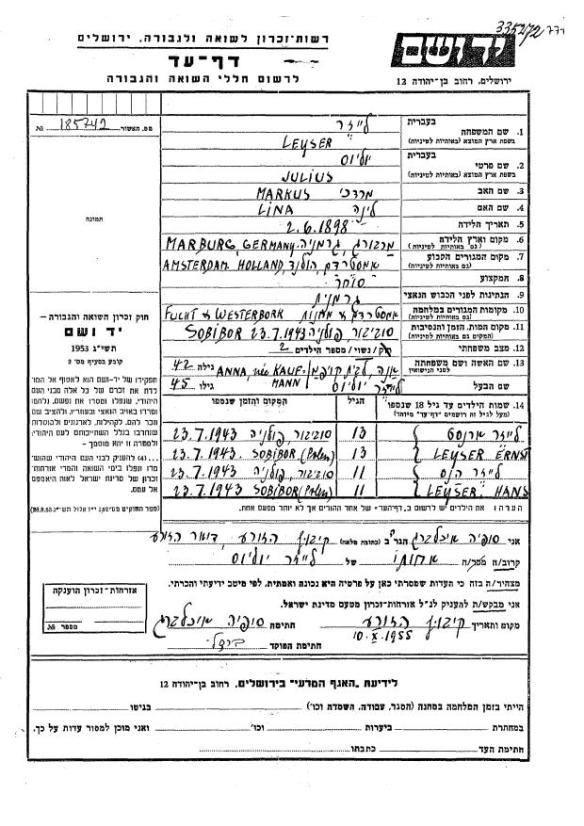 335272
771
רשות-זכרון לשואה ולגבורה, ירושלים
יד ושם
דף-עד
ירושלים, רחוב בן-יהודה 12
לרשום חללי השואה והגבורה
מס. האשור 185742 №
תמונה
חוק זכרון השואה והגבורה —
יד ושם
תשי״ג 1953
קובע בסעיף מס׳ 2
תפקידו של יד-ושם הוא לאסוף אל המולדת את זכרם של כל אלה מבני העם
היהודי, שנפלו ומסרו את נפשם, נלחמו
ומרדו באויב הנאצי ובעוזריו, ולהציב שם
וזכר להם, לקהילות, לארגונים ולמוסדות
שנחרבו בגלל השתייכותם לעם היהודי;
1. שם המשפחה
בעברית
לייזר
בשפת ארץ המוצא (באותיות לטיניות)
LEYSER
2. שם פרטי
בעברית
יוליוס
בשפת ארץ המוצא (באותיות לטיניות)
JULIUS
3. שם האב
מרדכי MARKUS
4. שם האם
לינה LINA
5. תאריך הלידה
2.6.1898
6. מקום וארץ הלידה
(גם באותיות לטיניות)
מרבורג, גרמניה MARBURG, GERMANY
7. מקום המגורים הקבוע
(גם באותיות לטיניות)
אמסטרדם, הולנד AMSTERDAM HOLLAND
8. המקצוע
סוחר
9. הנתינות לפני הכבוש הנאצי
גרמנית
10. מקומות המגורים במלחמה
(גם באותיות לטיניות)
אמסטרדם FUCHT & WESTERBORK
11. מקום המות, הזמן והנסיבות
(המקום גם באותיות לטיניות)
סוביבור, פולניה SOBIBOR 23.7.1943
12. מצב משפחתי
נשוי / מספר הילדים 2
13. שם האשה ושם משפחתה
לפני הנישואין
אנה, לבית קויפמן ANNA, née KAUF-
MANN
גילה 42
שם הבעל
לייזר יוליוס
גילו 45
14. שמות הילדים עד גיל 18 שנספו
(מעל לגיל זה רושמים ״דף-עד״ מיוחד)
הגיל
המקום והזמן שנספו
לייזר ארנסט 13 סוביבור, פולניה 23.7.1943
LEYSER ERNST 13 SOBIBOR (Polen) 23.7.1943
לייזר הנס 11 סוביבור, פולניה 23.7.1943
LEYSER HANS 11 SOBIBOR (Polen) 23.7.1943
אני סופיה איכלברג הגר ב (כתובת מלאה) קיבוץ הזורע, דואר הזורע
קרוב/ה אחותו של לייזר יוליוס
מצהיר/ה בזה כי העדות שמסרתי כאן על פרטיה היא נכונה ואמתית, לפי מיטב ידיעתי והכרתי.
אני מבקש/ת להעניק לנ״ל אזרחות-זכרון מטעם מדינת ישראל.
מקום ותאריך קיבוץ הזורע 10.X.1955 חתימה סופיה איכלברג
חתימת הפוקד
אזרחות-זכרון הוענקה
מספר №
לידיעת האגף המדעי בירושלים, רחוב בן-יהודה 12
הייתי בזמן המלחמה במחנה (הסגר, עבודה, השמדה וכו׳) בגיטו
במחתרת ביערות וכו׳ ואני מוכן למסור עדות על כך.
חתימת העד כתבתו